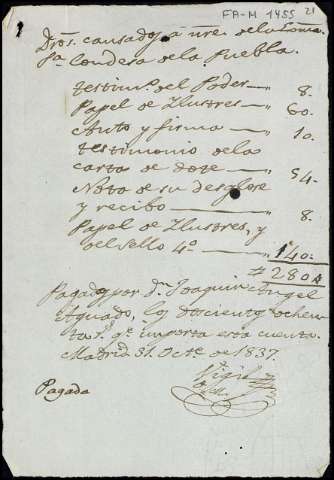 FA-M 1455 21
Dros. causados a nre. de la Exma.
Sa. Condesa de la Puebla.
Testimo. del Poder — 8.
Papel de Ilustres — 60.
Auto y firma — 10.
Testimonio de la
carta de dote — 54.
Nota de su desglose
y recibo — 8.
Papel de Ilustres, y
del sello 4º — 140.
# 280 #
Pagados por Dn. Joaquin Angel
Aguado, los doscientos ochen-
ta rs. qe. importa esta cuenta.
Madrid 31 Octe. de 1837.
Vigil
Pagada